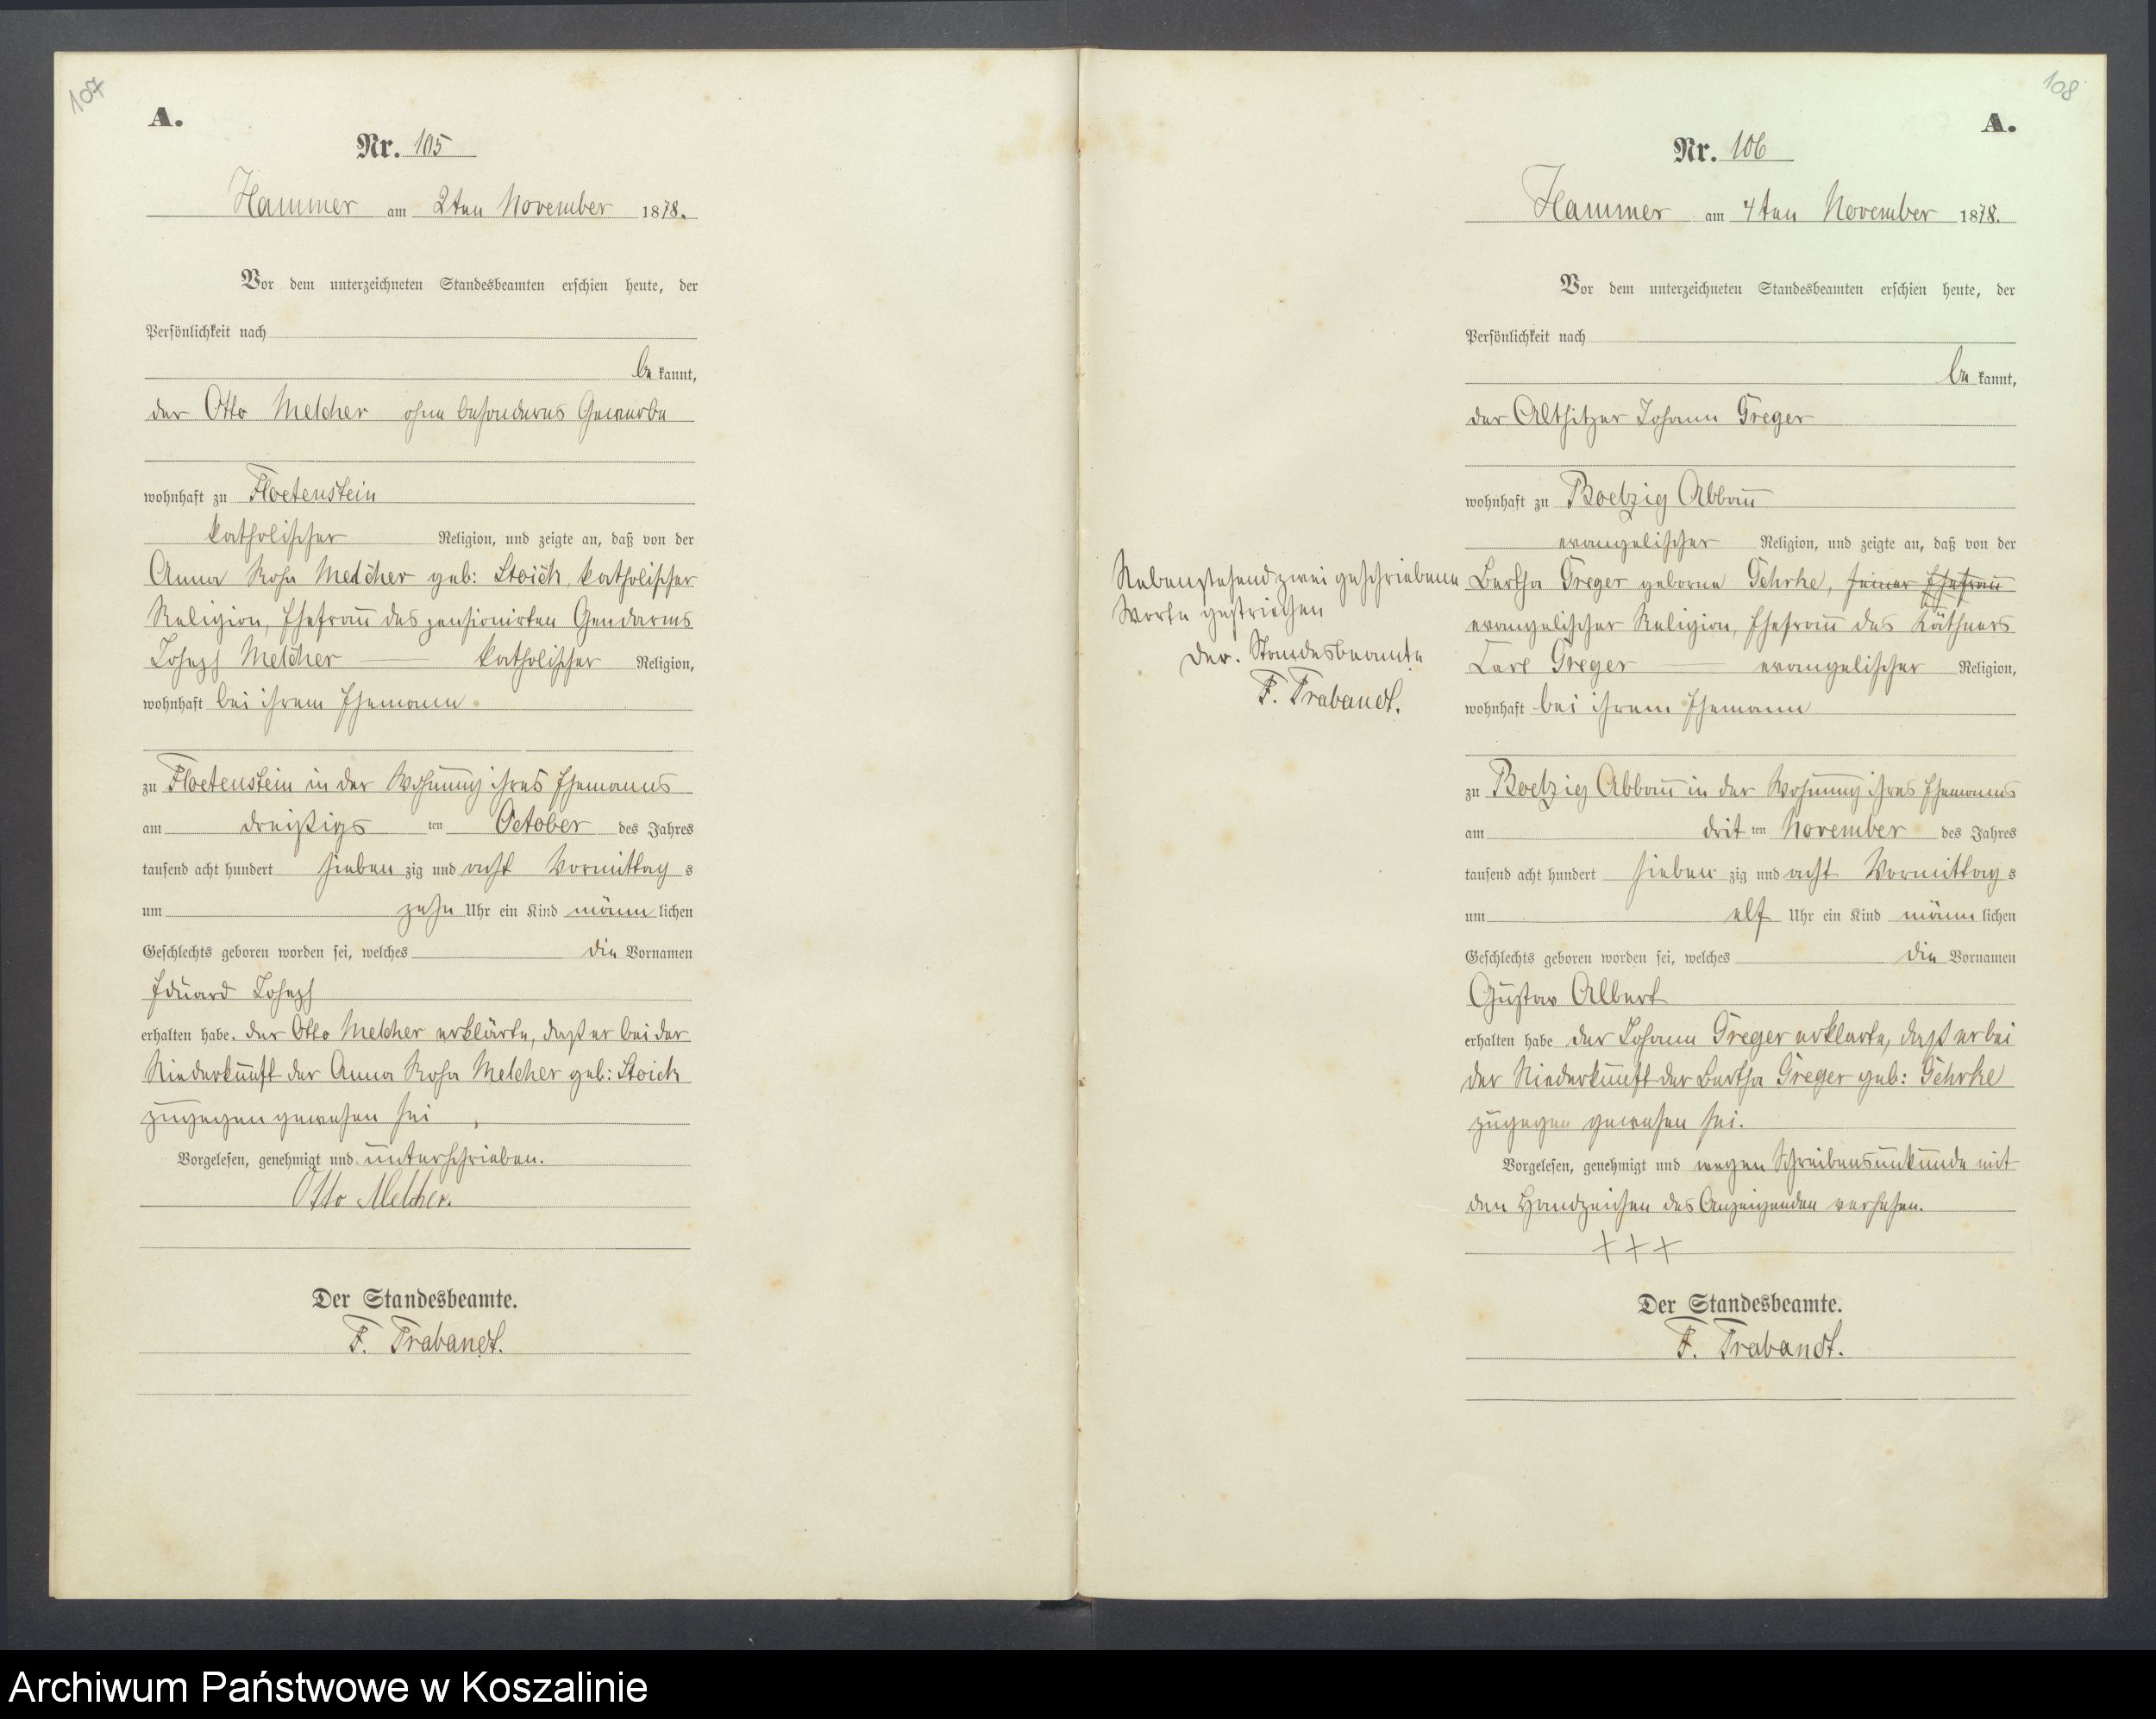 107
A.
Nr. 105
Hammer am 2ten November 1878.
Vor dem unterzeichneten Standesbeamten erschien heute, der
Persönlichkeit nach
be kannt,
der Otto Melcher ohne besonderes Gewerbe
wohnhaft zu Floetenstein
katholischer Religion, und zeigte an, daß von der
Anna Rosa Melcher geb: Stoick, katholischer
Religion, Ehefrau des pensionirten Gendarms
Joseph Melcher katholischer Religion,
wohnhaft bei ihrem Ehemann
zu Floetenstein in der Wohnung ihres Ehemanns
am dreißigs ten October des Jahres
tausend acht hundert sieben zig und acht Vormittag s
um zehn Uhr ein Kind männ lichen
Geschlechts geboren worden sei, welches die Vornamen
Eduard Joseph
erhalten habe. der Otto Melcher erklärte, daß er bei der
Niederkunft der Anna Rosa Melcher geb: Stoick
zugegen gewesen sei
Vorgelesen, genehmigt und unterschrieben.
Otto Melcher.
Der Standesbeamte.
F. Trabandt.
108
A.
Nr. 106
Hammer am 4ten November 1878.
Vor dem unterzeichneten Standesbeamten erschien heute, der
Persönlichkeit nach
be kannt,
der Altsitzer Johann Greger
wohnhaft zu Poelzig Abbau
evangelischer Religion, und zeigte an, daß von der
Bertha Greger geborne Gehrke, seiner Ehefrau
evangelischer Religion, Ehefrau des Käthners
Carl Greger evangelischer Religion,
wohnhaft bei ihrem Ehemann
zu Poelzig Abbau in der Wohnung ihres Ehemanns
am drit ten November des Jahres
tausend acht hundert sieben zig und acht Vormittag s
um elf Uhr ein Kind männ lichen
Geschlechts geboren worden sei, welches die Vornamen
Gustav Albert
erhalten habe der Johann Greger erklarte, daß er bei
der Niederkunft der Bertha Greger geb: Gehrke
zugegen gewesen sei.
Vorgelesen, genehmigt und wegen Schreibensunkunde mit
den Handzeichen des Anzeigenden versehen.
+++
Der Standesbeamte.
F. Trabandt.
Nebenstehend zwei geschriebene
Worte gestrichen
Der. Standesbeamte
F. Trabandt.
Archiwum Państwowe w Koszalinie